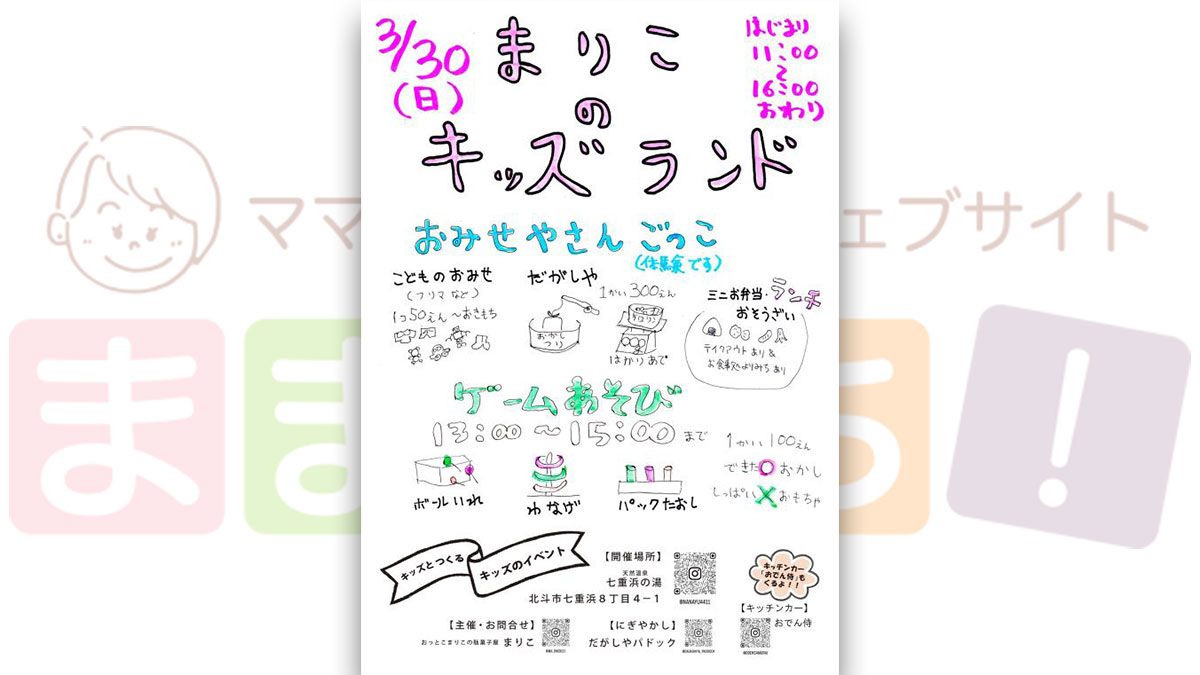 3/30
(日)
まりこ
の
キッズランド
はじまり
11:00
〜
16:00
おわり
おみせやさんごっこ
(体験です)
こどものおみせ
(フリマなど)
1つ50えん〜おきもち
だがしや
1かい300えん
おかし
つり
はかりあて
ミニお弁当・ランチ
おそうざい
テイクアウトあり&
お食事処よりみちあり
ゲームあそび
13:00〜15:00まで
ボールいれ
わなげ
パックたおし
1かい100えん
できた○おかし
しっぱい×おもちゃ
キッズとつくる
キッズのイベント
【開催場所】
天然温泉
七重浜の湯
北斗市七重浜8丁目4−1
@NANAYU4411
キッチンカー
「おでん侍」も
くるよ!!
【キッチンカー】
おでん侍
【主催・お問合せ】
おっとこまりこの駄菓子屋 まりこ
【にぎやかし】
だがしやパドック
ママ
ェブサイト
ま
ま
ち
!